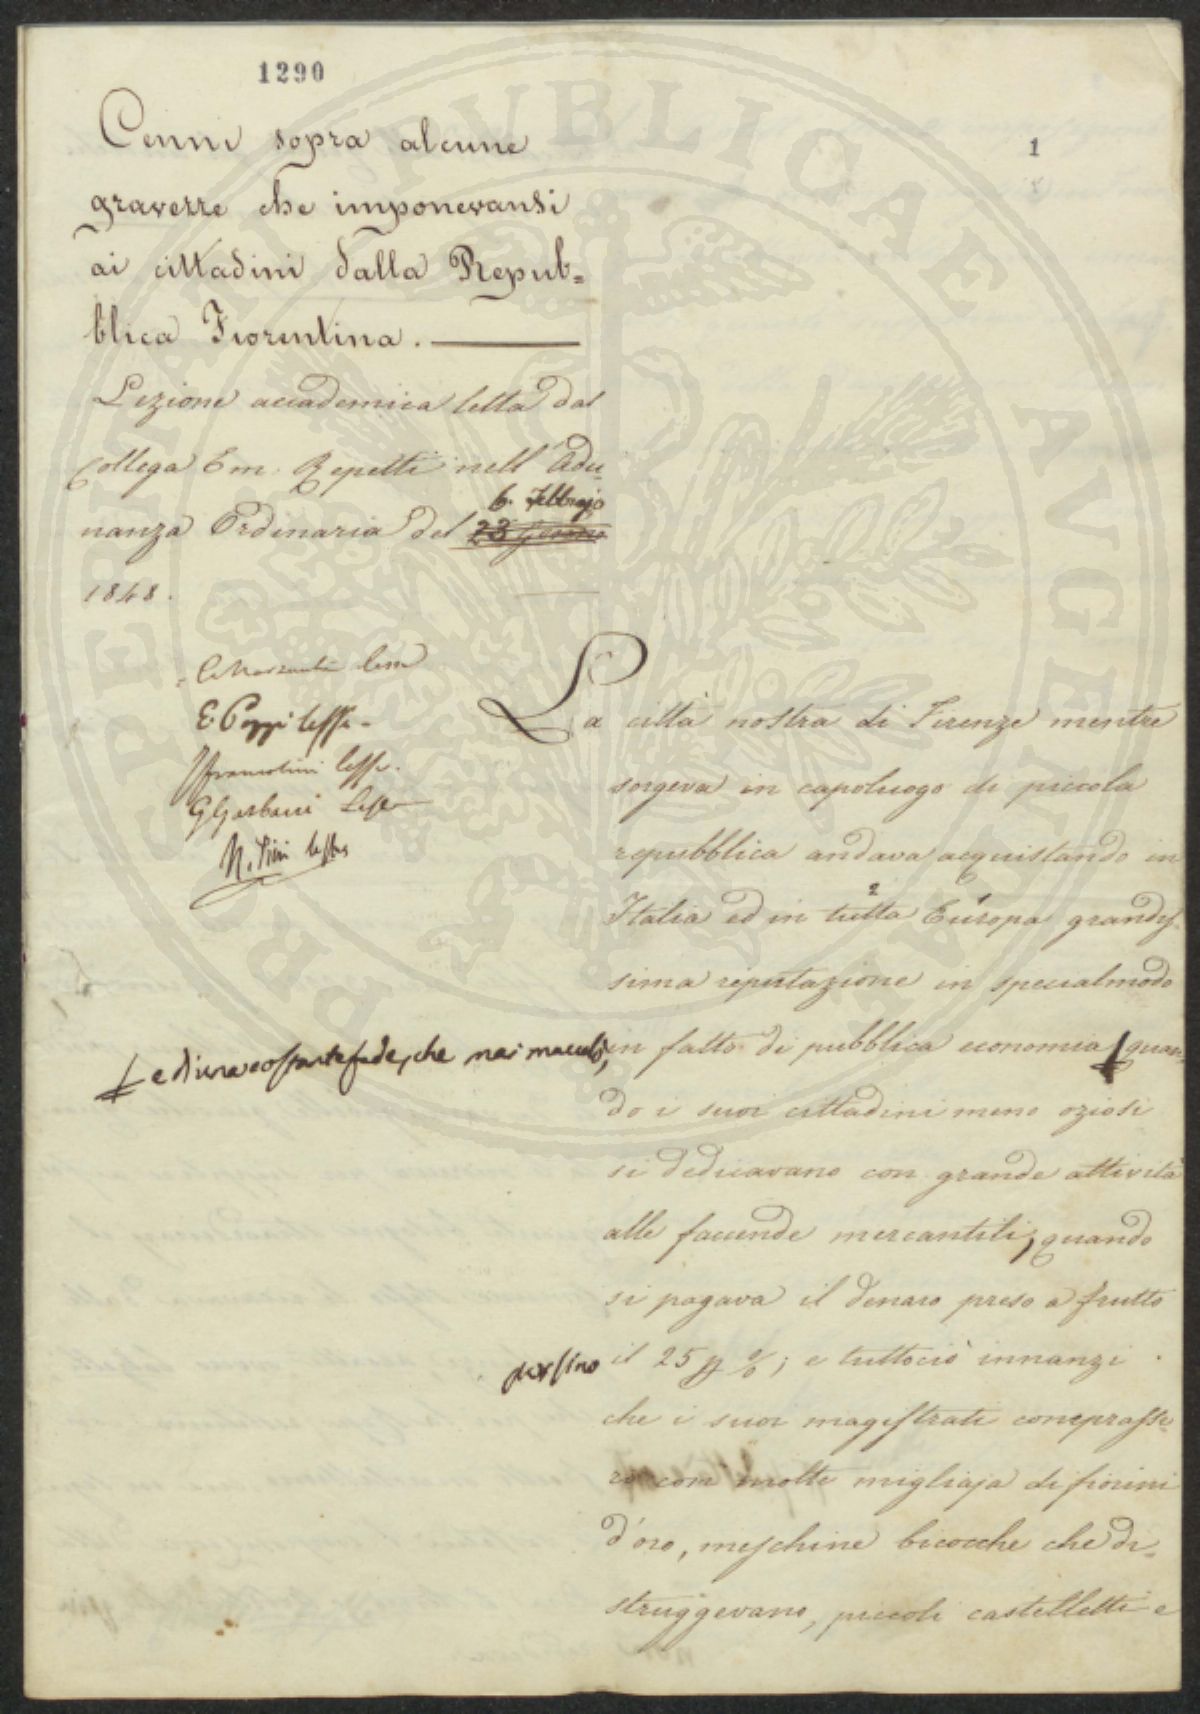 1290
1
Cenni sopra alcune
gravezze che imponevansi
ai cittadini dalla Repub=
blica Fiorentina.
Lezione accademica letta dal
Collega Em. Repetti nell'Adu-
nanza Ordinaria del 23 6. Febbrajo
1848.
E Poggi lesse
Franceschini lesse.
G Garbarri Lesse
La città nostra di Firenze mentre
sorgeva in capoluogo di piccola
repubblica andava acquistando in
Italia ed in tutta Europa grandis-
sima riputazione in specialmodo
e di una costante fede, che mai maculò,
in fatto di pubblica economia quan-
do i suoi cittadini meno oziosi
si dedicavano con grande attività
alle faccende mercantili, quando
si pagava il denaro preso a frutto
perfino il 25 p %; e tuttociò innanzi
che i suoi magistrati comprasse-
ro con molte migliaja di fiorini
d'oro, meschine bicocche che di=
struggevano, piccoli castelletti e
PROSPERITATI PVBLICAE AVGENDAE